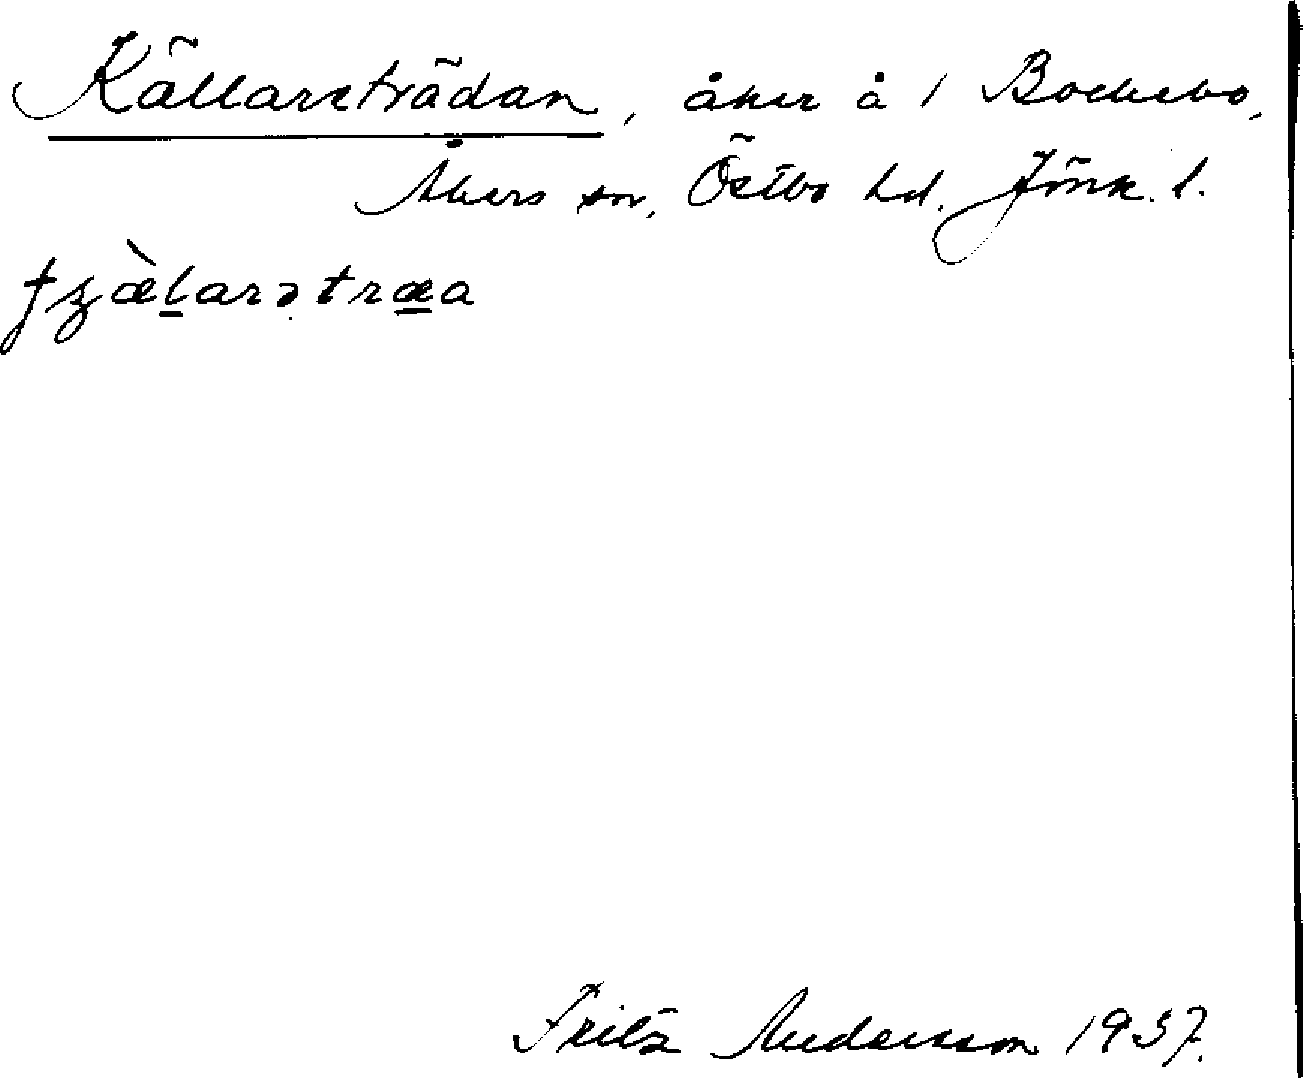 Källareträdan, åker å 1 Bockebo,
Åkers sn, Östbo hd. Jönk. l.
tʒὰlarətræa
Fritz Andersson 1937.